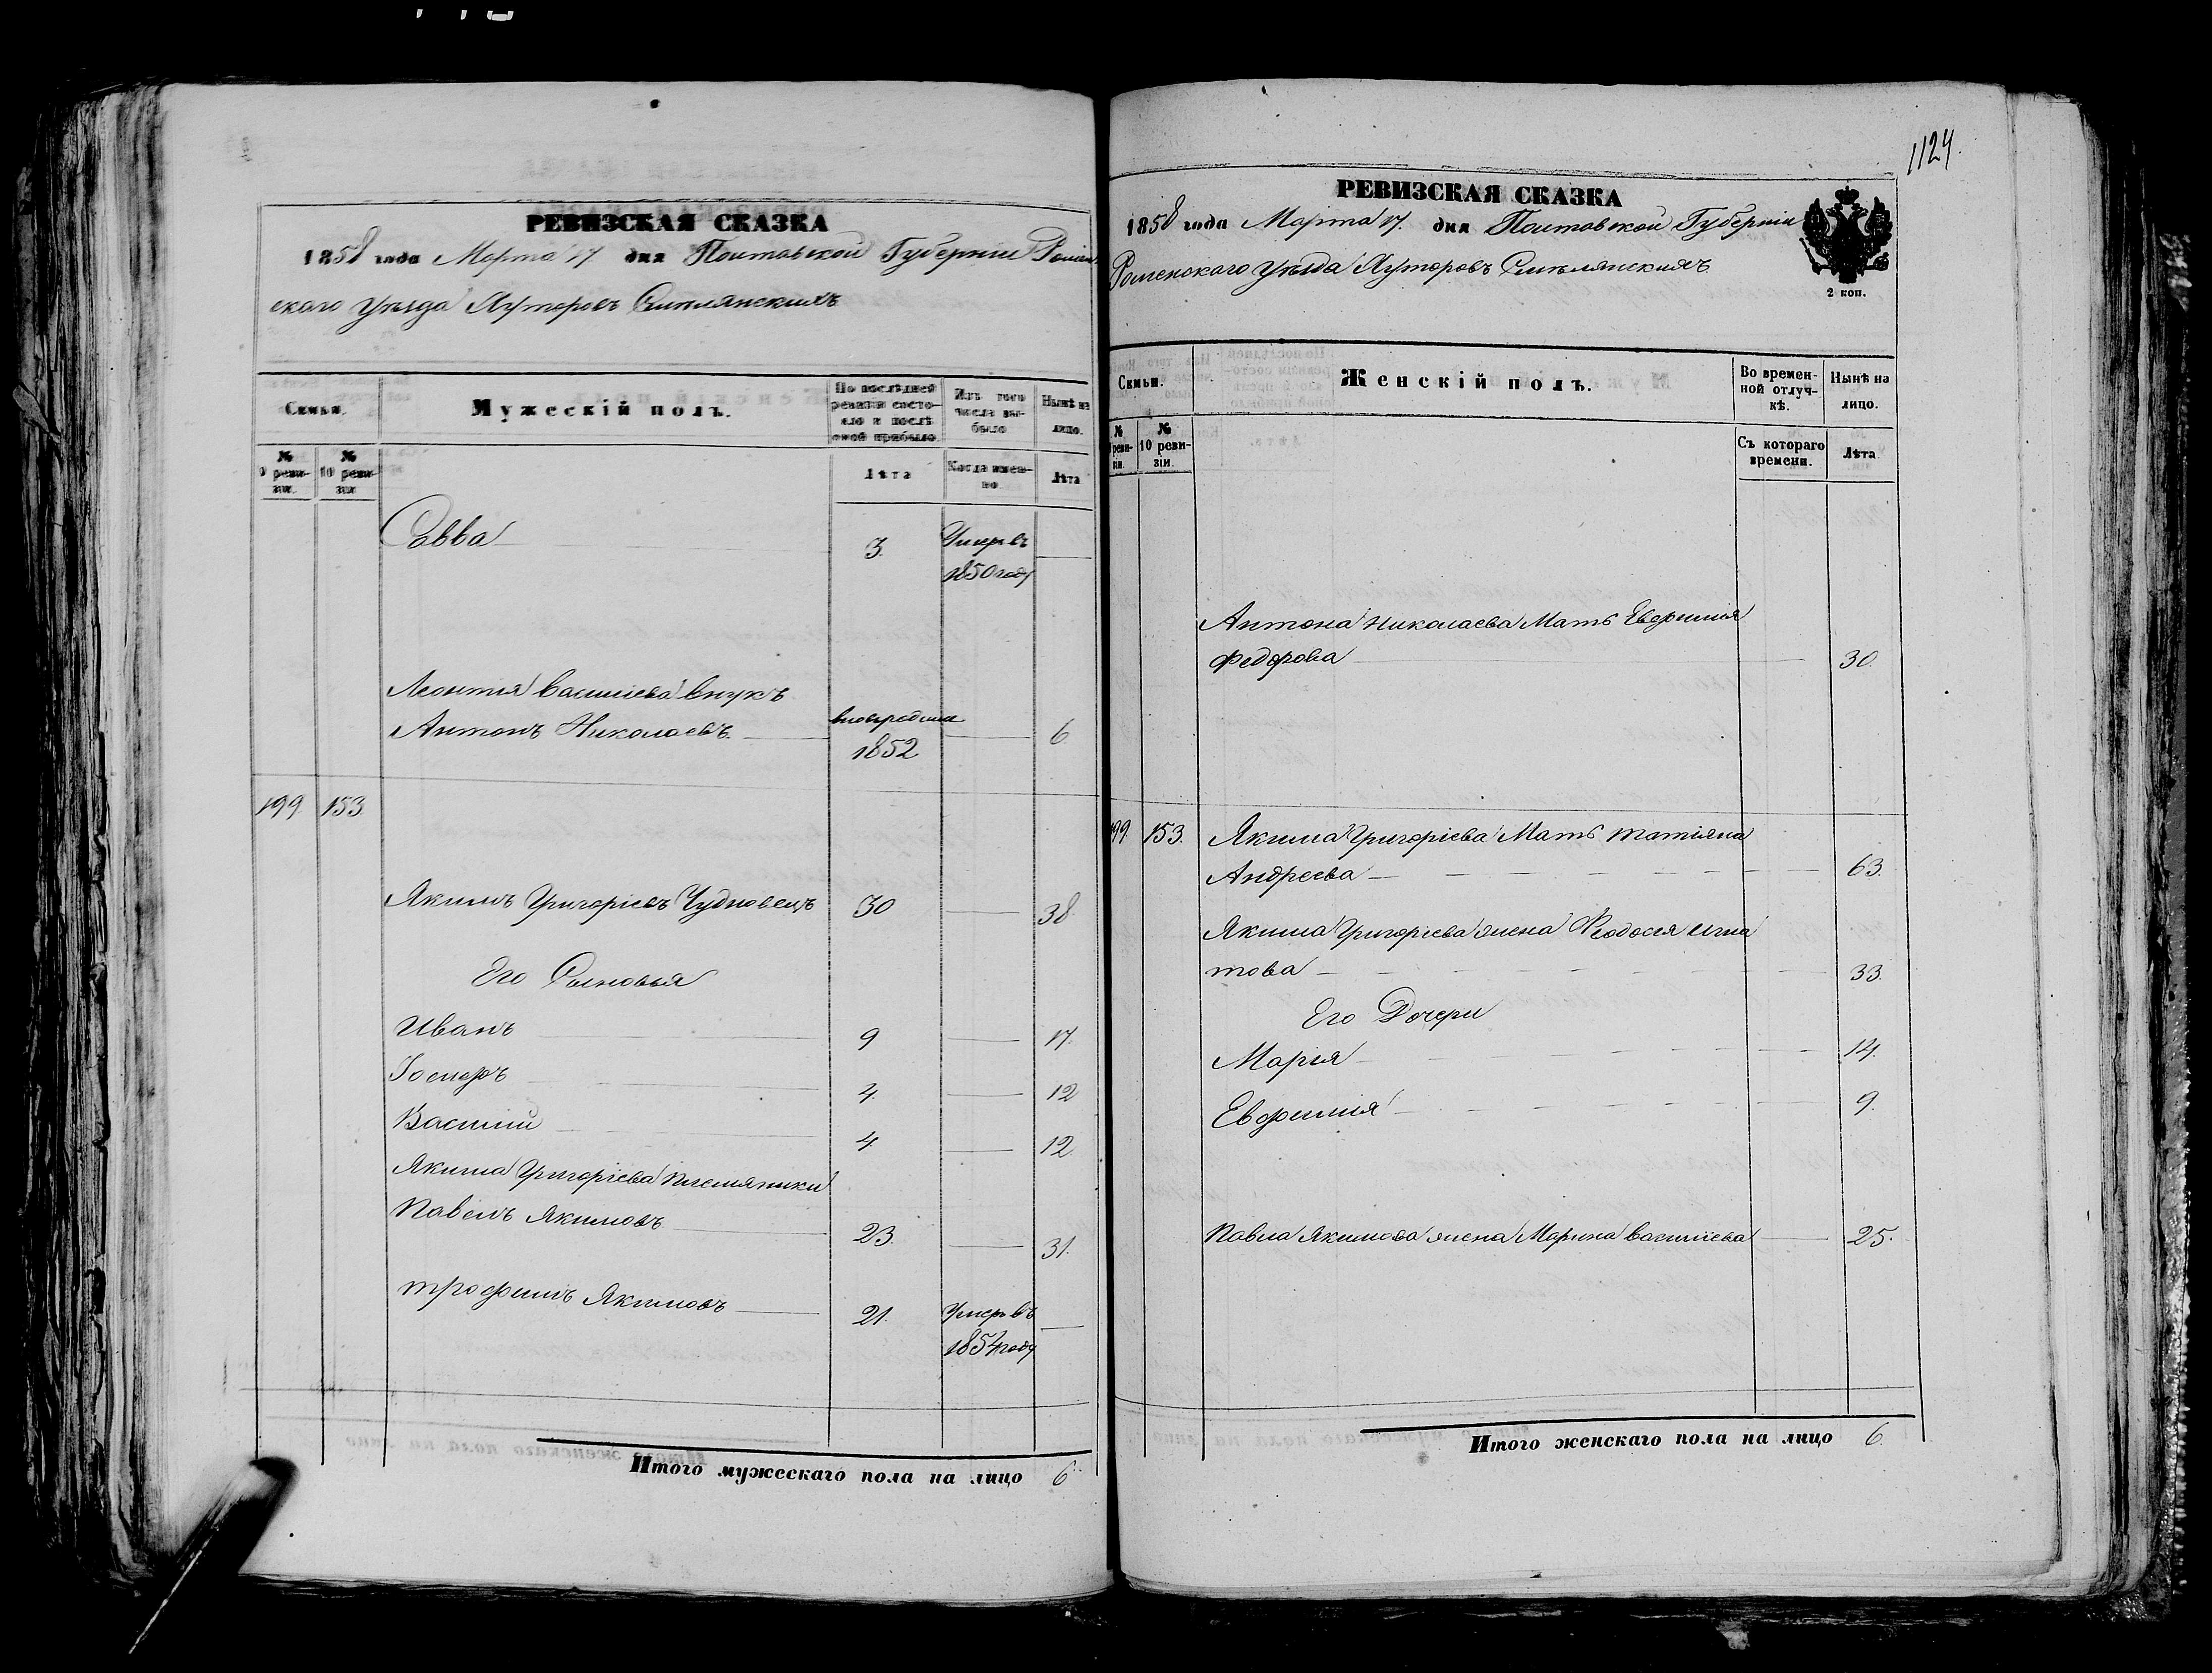 РЕВИЗСКАЯ СКАЗКА
1858 года Марта 17 дня Полтавской Губерніи Ромен
скаго уѣзда Хуторовъ Смѣлянскихъ
Семьи.
Мужескій полъ.
По послѣдней
ревизіи состо-
яло и послѣ
оной прибыло.
Изъ того
числа вы-
было
Нынѣ на
лицо.
№
9 реви-
зіи.
№
10 реви-
зіи
Лѣта
Когда имен-
но
Лѣта
Савва 3. Умеръ въ
1850 году
Леонтія Василіева внукъ
Антонъ Николаевъ. 6
1852
199. 153.
Якимъ Григоріевъ Чудновецъ 30 38
Его Сыновья
Иванъ 9 17.
Іосифъ 4. 12
Василій 4 12
Якима Григоріева племяники
Павелъ Якимовъ 23. 31.
трофимъ Якимовъ 21. Умеръ въ
1854 году
Итого мужескаго пола на лицо 6.
1124.
РЕВИЗСКАЯ СКАЗКА
1858 года Марта 17. дня Полтавской Губерніи
Роменскаго уѣзда Хуторовъ Смѣлянскихъ
2 коп.
Семьи.
Женскій полъ.
Во времен-
ной отлуч-
кѣ.
Нынѣ на
лицо.
№
9 реви-
зіи.
№
10 реви-
зіи.
Съ котораго
времени.
Лѣта
Антона Николаева Мать Евфимія
Федорова 30.
199. 153. Якима Григоріева Мать татіяна
Андреева 63.
Якима Григоріева жена Феодосія игна
това 33.
Его Дочери
Марія 14.
Евфимія 9.
Павла Якимова жена Марина василіева 25.
Итого женскаго пола на лицо 6.